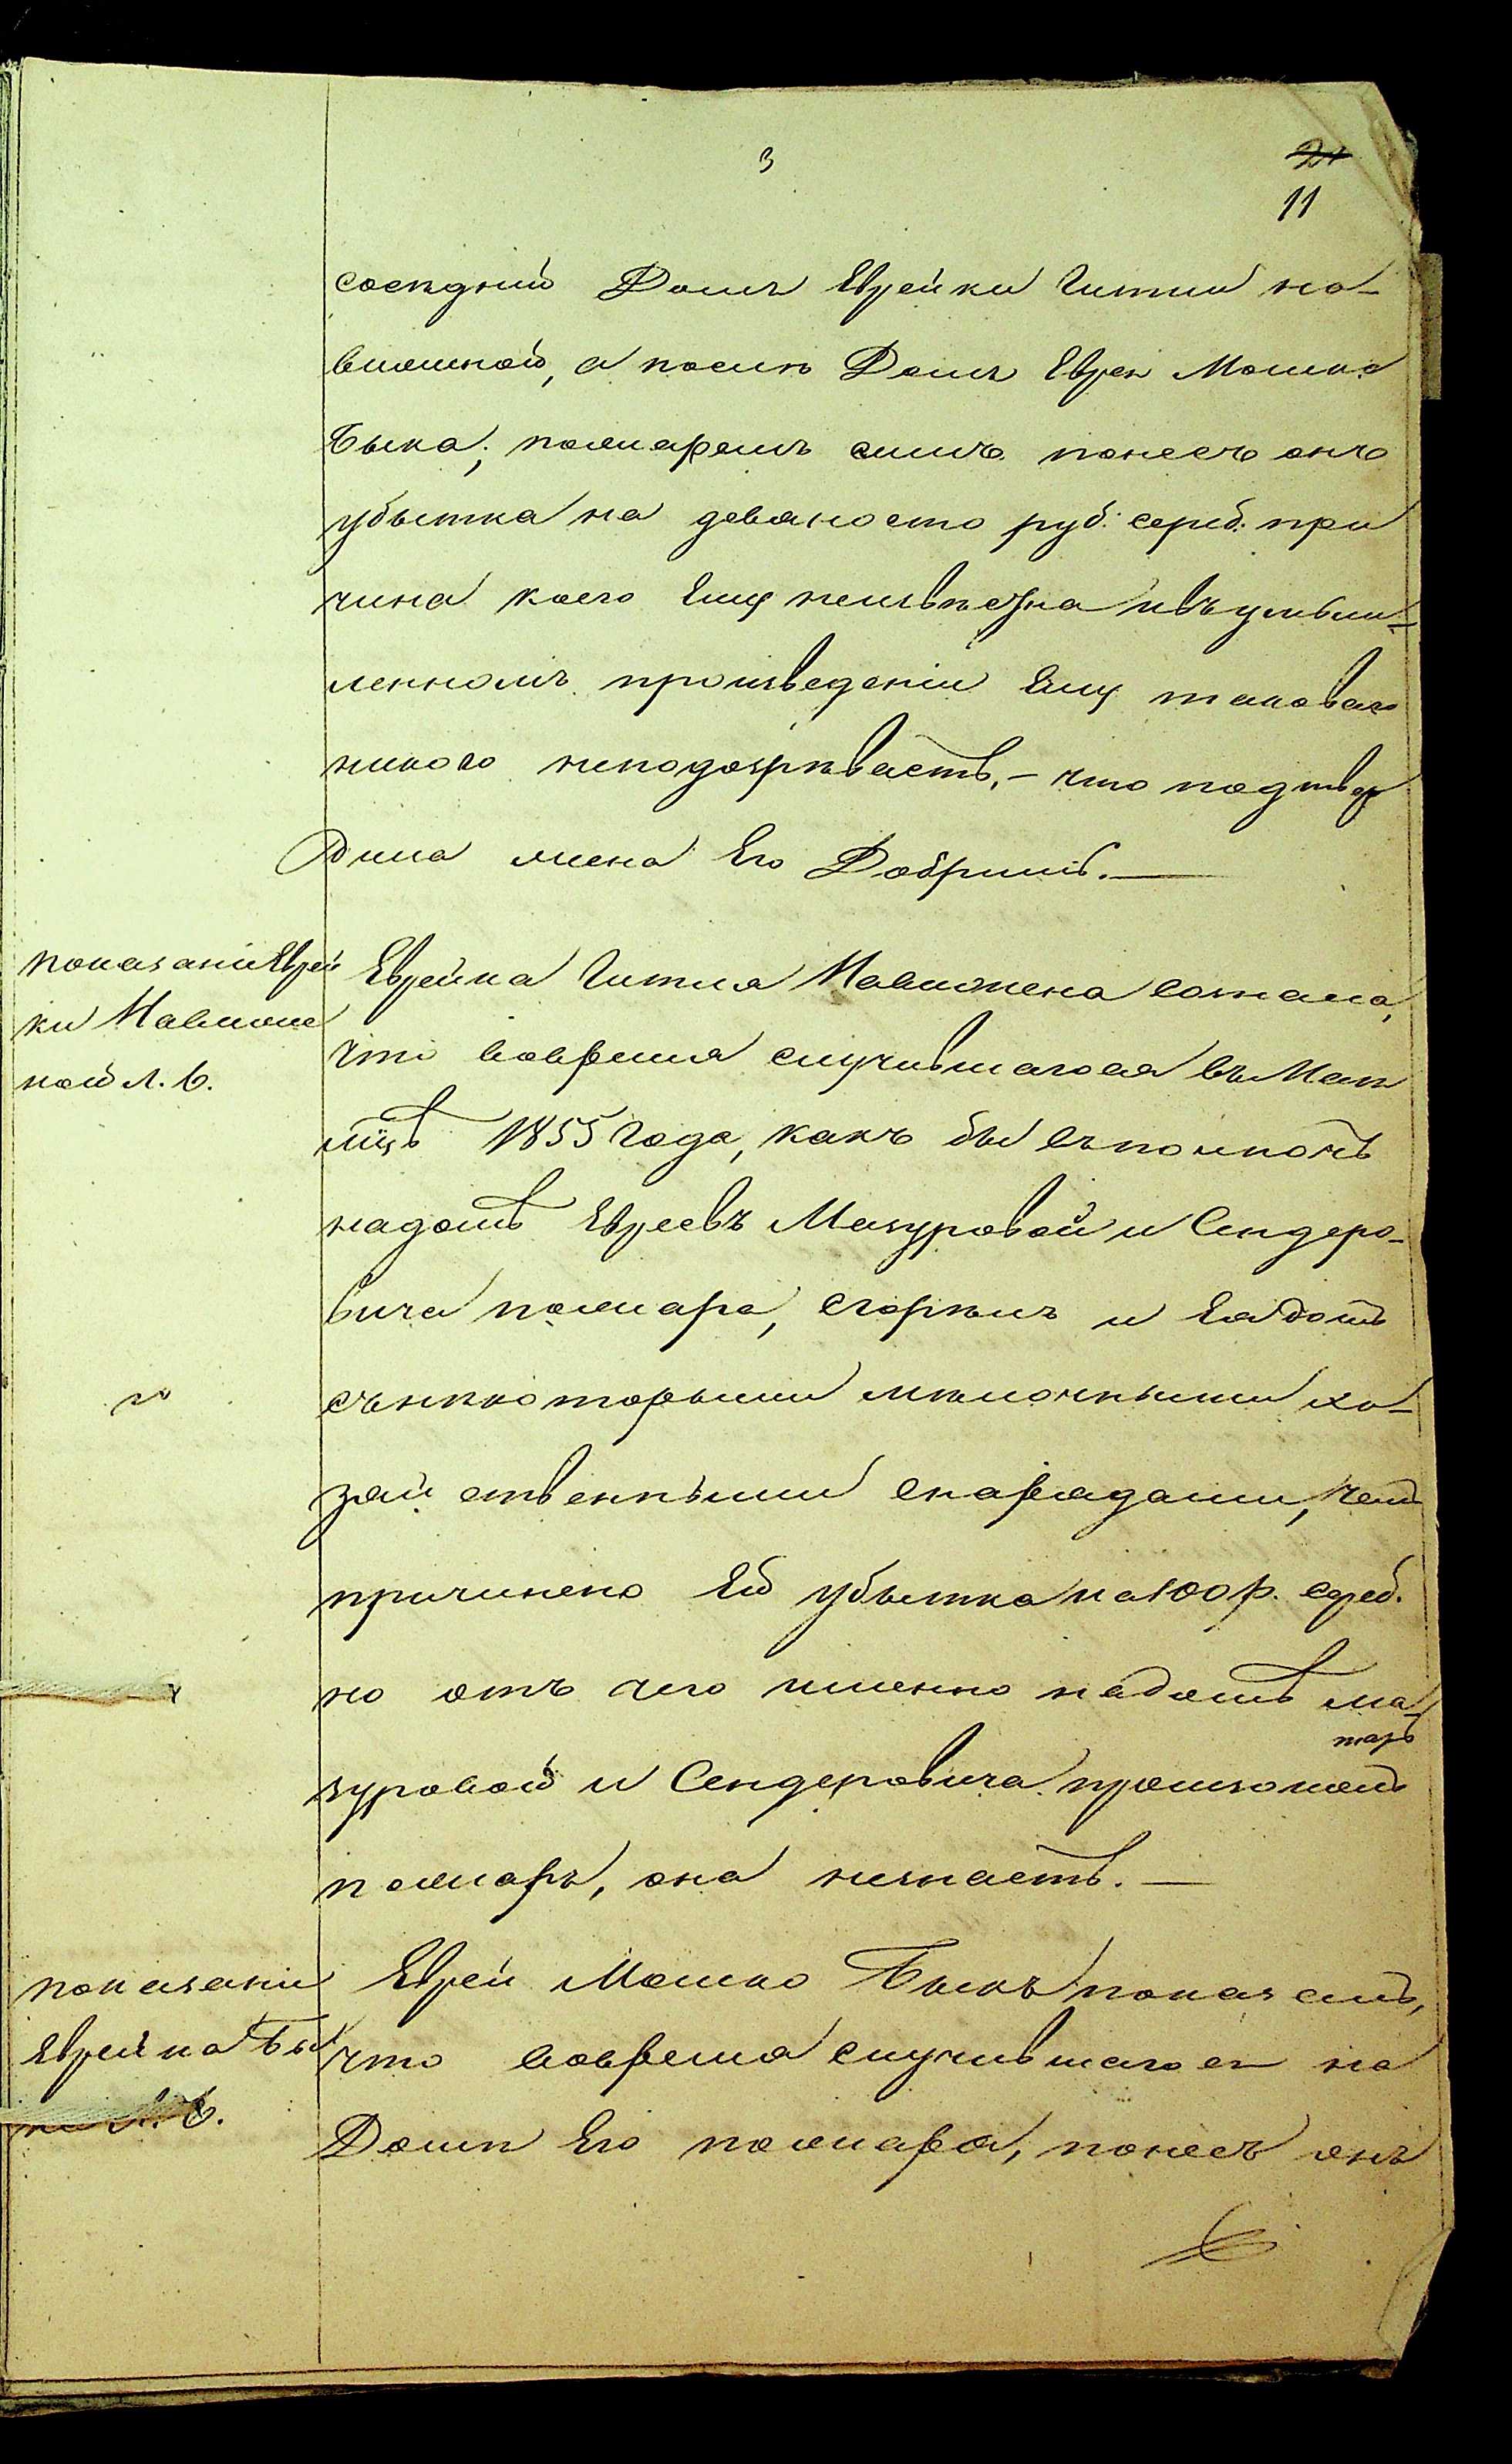 3
21
11
соседній Домъ Еврейки Гитли На-
влошной, а после Домъ Еврея Мошка
Быка; пожаромъ симъ понесъ онъ
убытка на девяносто руб. сереб. при
чина коего Ему неизвестна и въ умыш-
ленномъ произведеніи Ему таковаго
никого неподозреваетъ, - что подтвер
дила жена Его Добришъ. —
показаніе Еврей
ки Навлош
ной л. 6.
Еврейка Гитля сознала,
что вовремя случившагося въ Маи
мцѣ 1855 Года, какъ бы въ полночь
надомъ Евреевъ Мазуровой и Сендеро-
вича пожара, сгорелъ и Ея домъ
съ некоторыми мелочными хо-
зяйственными снарядами, чемъ
причинено Ей убытка на 100 р. сереб.
но отъ чего именно надомъ Ма-
зуровой и Сендеровича произошолъ
тотъ
пожаръ, она незнаетъ. —
показаніе
Еврейка Бы
ка л. 6.
Еврей Мошко Быкъ показалъ,
что вовремя случившагося на
Доме Его пожара, понесъ онъ